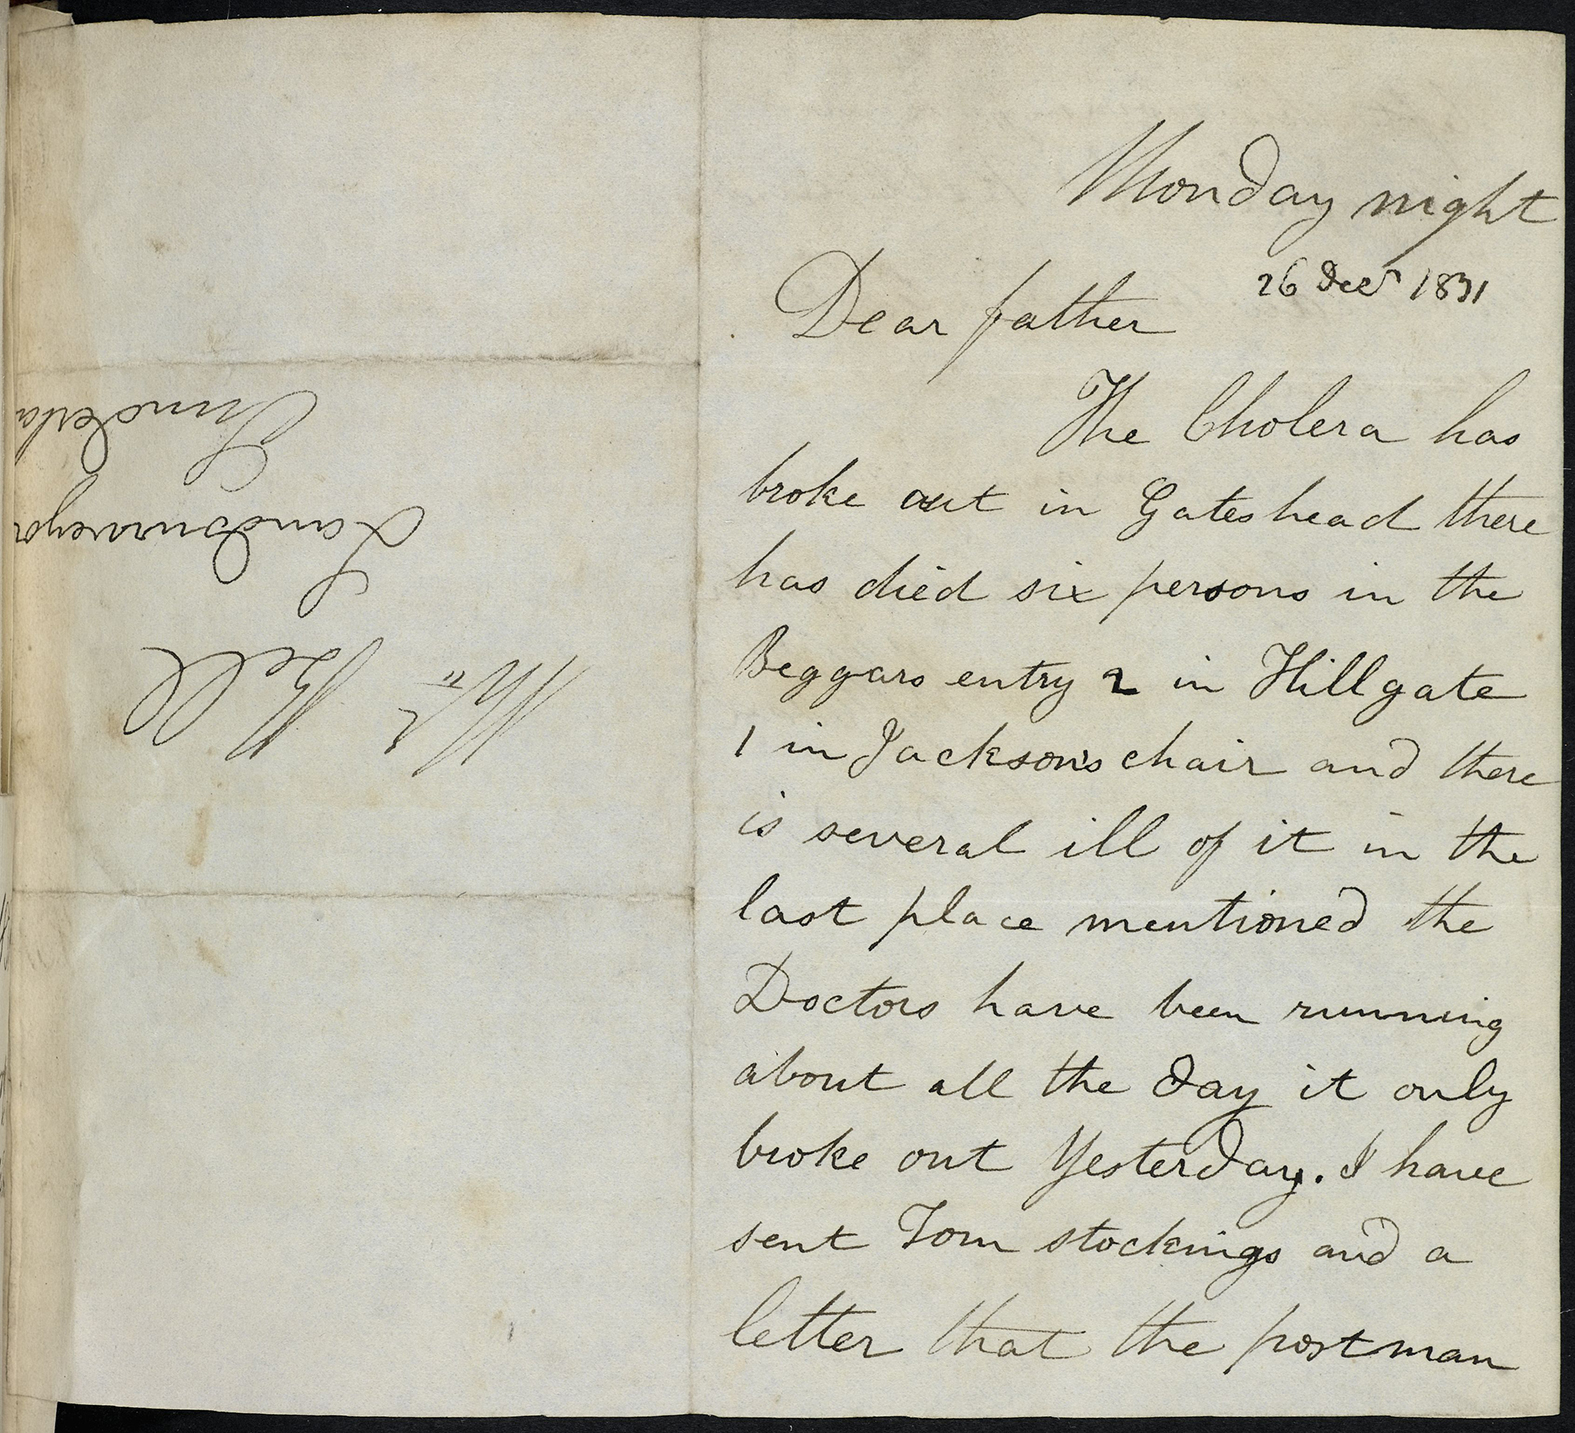 Monday night
26 Decr 1831
Dear father
The Cholera has
broke out in Gateshead there
has died six persons in the
Beggars entry 2 in Hillgate
1 in Jackson's chair and there
is several ill of it in the
last place mentioned the
Doctors have been running
about all the day it only
broke out Yesterday. I have
sent Tom stockings and a
letter that the postman
Mr Bell
Landsurveyor
Sunderla